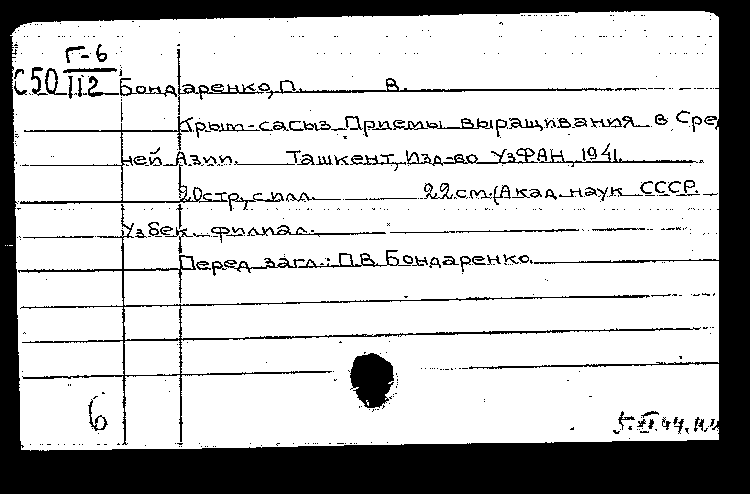 Г-6
С50 112 Бондаренко, П. В.
Крым-сагыз Приемы выращивания в Сред
ней Азии. Ташкент, Изд-во УзФАН, 1941.
20стр., с илл. 22см. (Акад. наук СССР.
Узбек. филиал.
Перед загл.: П.В. Бондаренко.
6